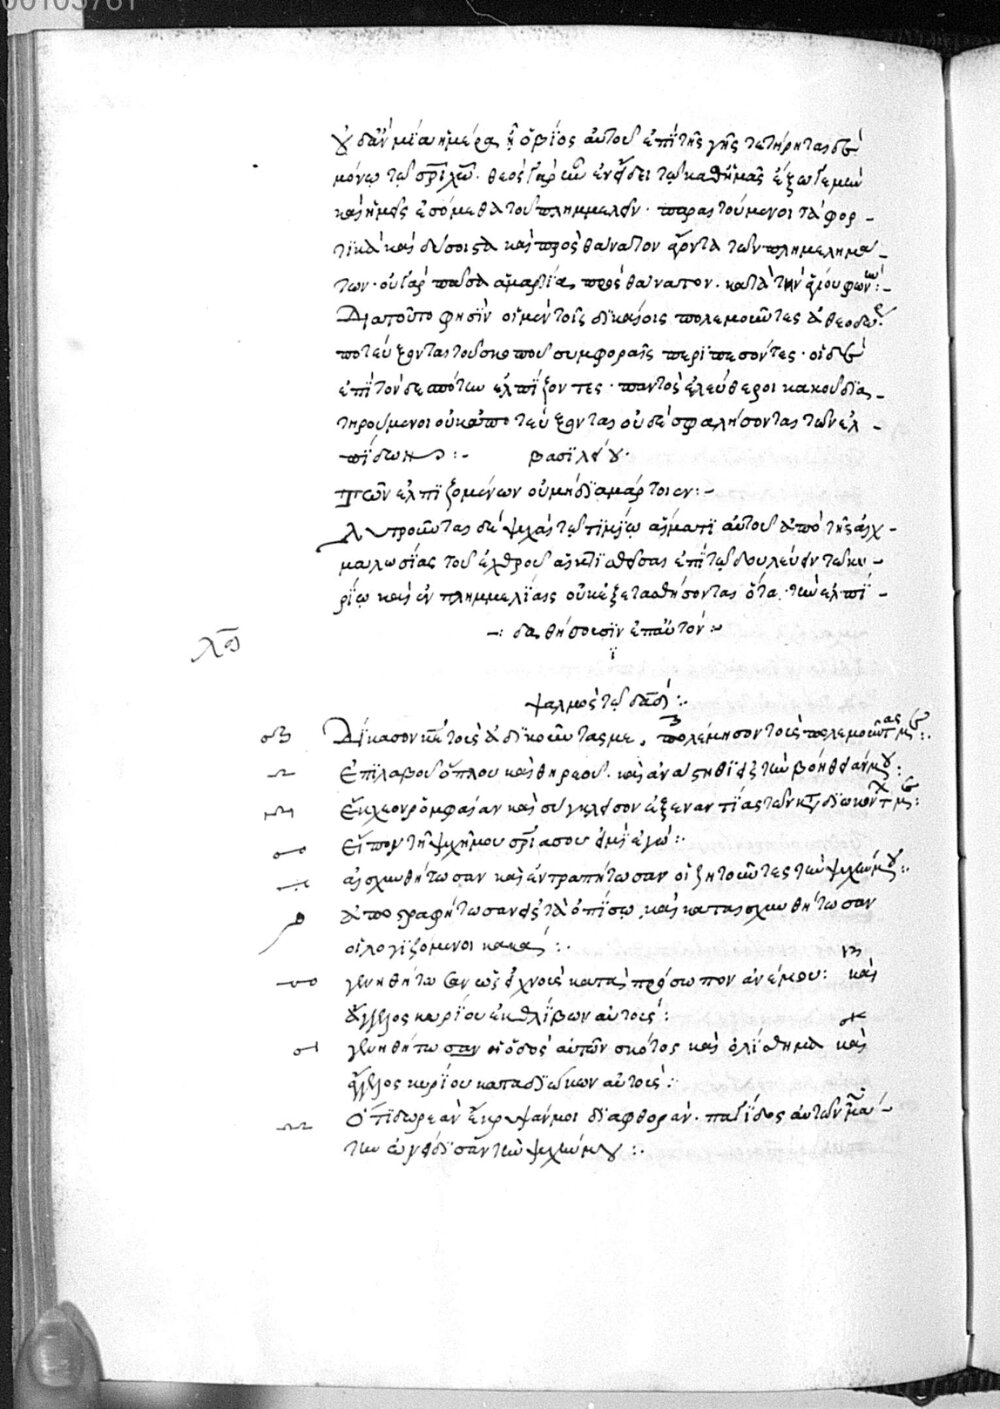 00105761
οὐδ' ἂν μία ἡμέρα ᾖ ὁ βίος αὐτοῦ ἐπὶ τῆς γῆς τετήρηται δὲ
μόνῳ τῷ χῶ. θεὸς γὰρ ὢν ἐνέδει τῷ καθ' ἡμᾶς
καὶ ἡμεῖς ἐσόμεθα τοῦ πλημμελεῖν. παραιτούμενοι τὰ φορ-
τικὰ καὶ καὶ πρὸς θάνατον ὄντα τῶν πλημελημά-
των. οὐ γὰρ πᾶσα ἁμαρτία πρὸς θάνατον. κατὰ τὴν φωνήν:-
Διατοῦτό φησιν οἱ μὲν τοῖς δικαίοις πολεμοῦντες
ποτεύξονται τοῦ σκοποῦ συμφοραῖς περιπεσόντες. οἱ δὲ
ἐπὶ τὸν δεσπότην ἐλπίζοντες. παντὸς ἐλεύθεροι κακοῦ δια-
τηρούμενοι οὐκ ἀποτεύξονται οὐδὲ σφαλήσονται τῶν ἐλ-
πίδων:- βασιλείου.
τῶν ἐλπιζομένων οὐ μὴ διαμάρτοιεν:-
Λυτροῦται δὲ ψυχὰς τῷ τιμίῳ αἵματι αὐτοῦ ἀπὸ τῆς αἰχ-
μαλωσίας τοῦ ἐχθροῦ ἀχθείσας ἐπὶ τῷ δουλεύειν τῷ κυ-
ρίῳ καὶ ἐν πλημμελίαις οὐκ ἐξετασθήσονται ὅτι τὴν ἐλπί-
-: δα θήσουσιν ἐπ' αὐτόν:-
ψαλμὸς τῷ δαδ:.
Δίκασον κε τοὺς ἀδικοῦντας με, πολέμησον τοὺς πολεμοῦντας με:.
Ἐπιλαβοῦ ὅπλου καὶ θυρεοῦ. καὶ ἀνάστηθι εἰς τὴν βοήθειάν μου:
Ἔκχεον ῥομφαίαν καὶ σύγκλεισον ἐξεναντίας τῶν καταδιωκόντων με:
Εἶπον τῇ ψυχῇ μου σρία σου εἰμὶ ἐγώ:.
αἰσχυνθήτωσαν καὶ ἐντραπήτωσαν οἱ ζητοῦντες τὴν ψυχήν μου:.
ἀποστραφήτωσαν εἰς τὰ ὀπίσω, καὶ καταισχυνθήτωσαν
οἱ λογιζόμενοι κακά:.
γενηθήτωσαν ὡς εἰ χνοῦς κατὰ πρόσωπον ἀνέμου: καὶ
ἄγγελος κυρίου ἐκθλίβων αὐτούς:
γενηθήτωσαν οἱ ὁδοὶ αὐτῶν σκότος καὶ ὀλίσθημα καὶ
ἄγγελος κυρίου καταδιώκων αὐτούς:
Ὅτι δωρεὰν ἔκρυψάν μοι διαφθορὰν. παγίδος αὐτῶν μά-
την ὠνείδισαν τὴν ψυχήν μου:.